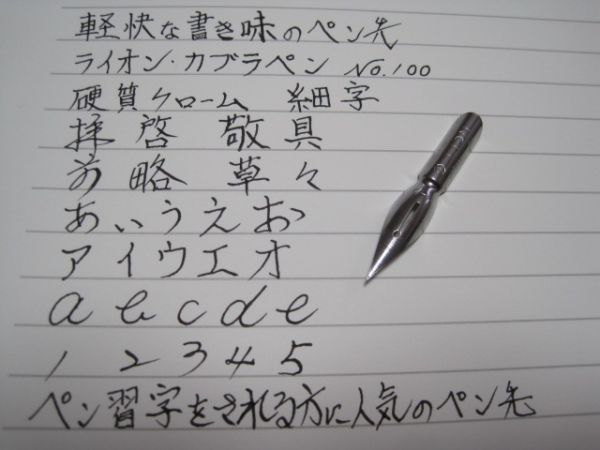 軽快な書き味のペン先
ライオン・カブラペン No.100
硬質クローム 細字
拝啓 敬具
前略 草々
あいうえお
アイウエオ
a b c d e
1 2 3 4 5
ペン習字をされる方に人気のペン先